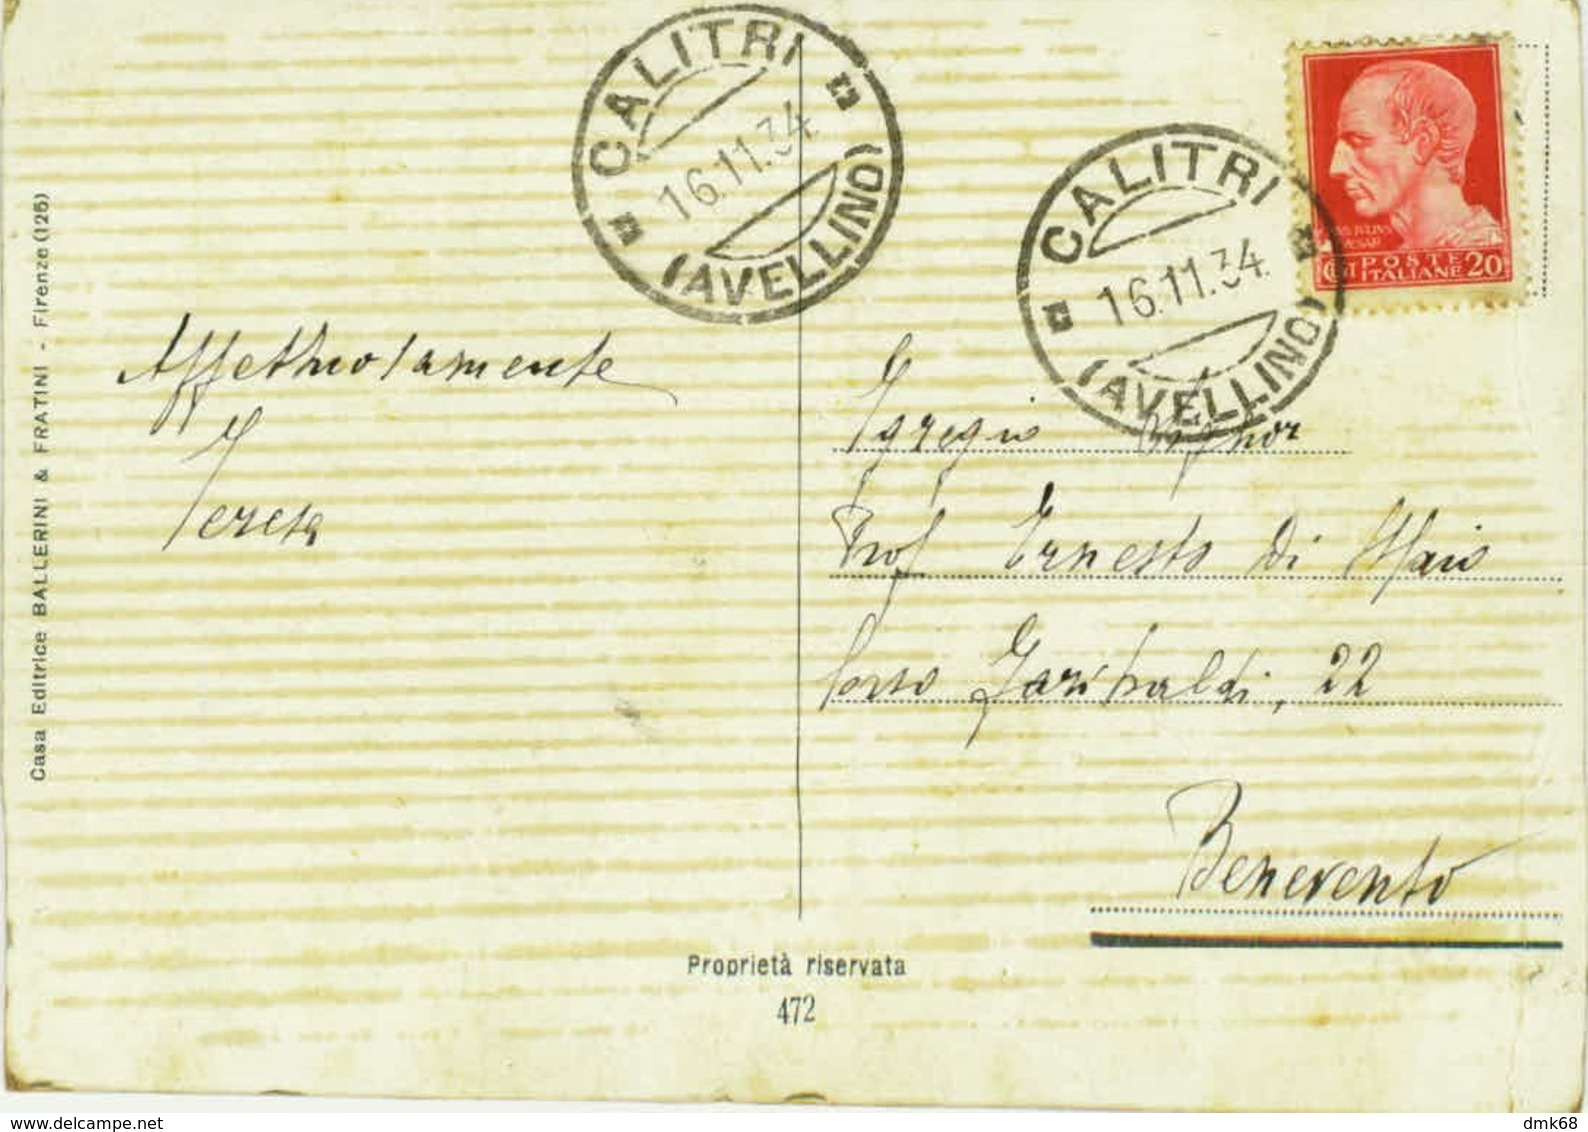 CALITRI
16.11.34
(AVELLINO)
CALITRI
16.11.34.
(AVELLINO)
POSTE
ITALIANE 20
Casa Editrice BALLERINI & FRATINI - Firenze (125)
Affettuosamente
Teresa
Egregio Signor
Prof Ernesto Di Maio
Corso Garibaldi, 22
Benevento
Proprietà riservata
472
www.delcampe.net
dmk68